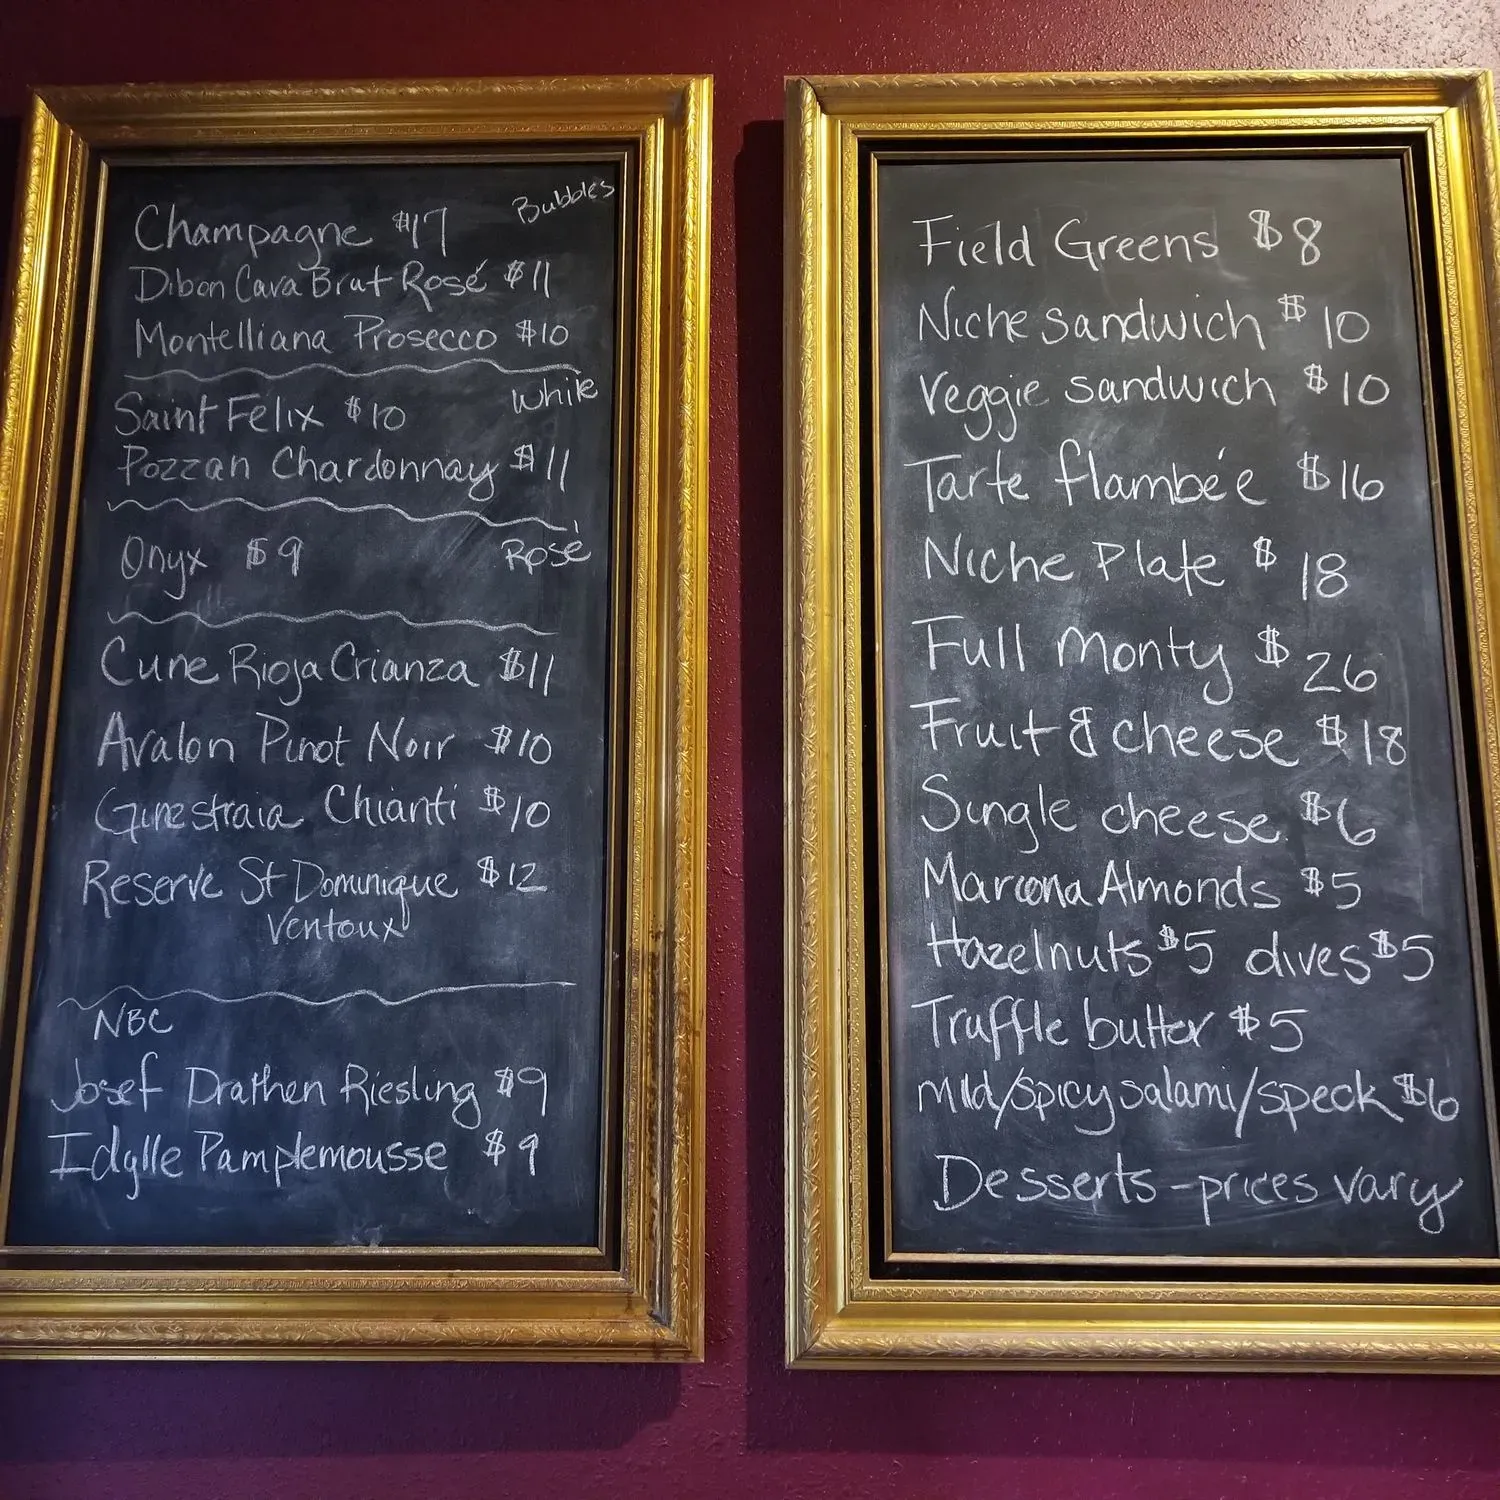 Bubbles
Champagne $17
Dibon Cava Brut Rosé $11
Montelliana Prosecco $10
White
Saint Felix $10
Pozzan Chardonnay $11
Onyx $9 Rosé
Cune Rioja Crianza $11
Avalon Pinot Noir $10
Ginestraia Chianti $10
Reserve St Dominique $12
Ventoux
NBC
Josef Drathen Riesling $9
Idylle Pamplemousse $9
Field Greens $8
Niche sandwich $10
Veggie sandwich $10
Tarte flambée $16
Niche Plate $18
Full Monty $26
Fruit & cheese $18
Single cheese $6
Marcona Almonds $5
Hazelnuts $5 olives $5
Truffle butter $5
mild/spicy salami/speck $6
Desserts - prices vary